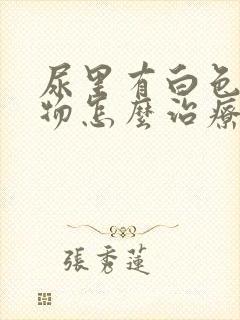 尿里有白色
物怎麼治療
張秀蓮